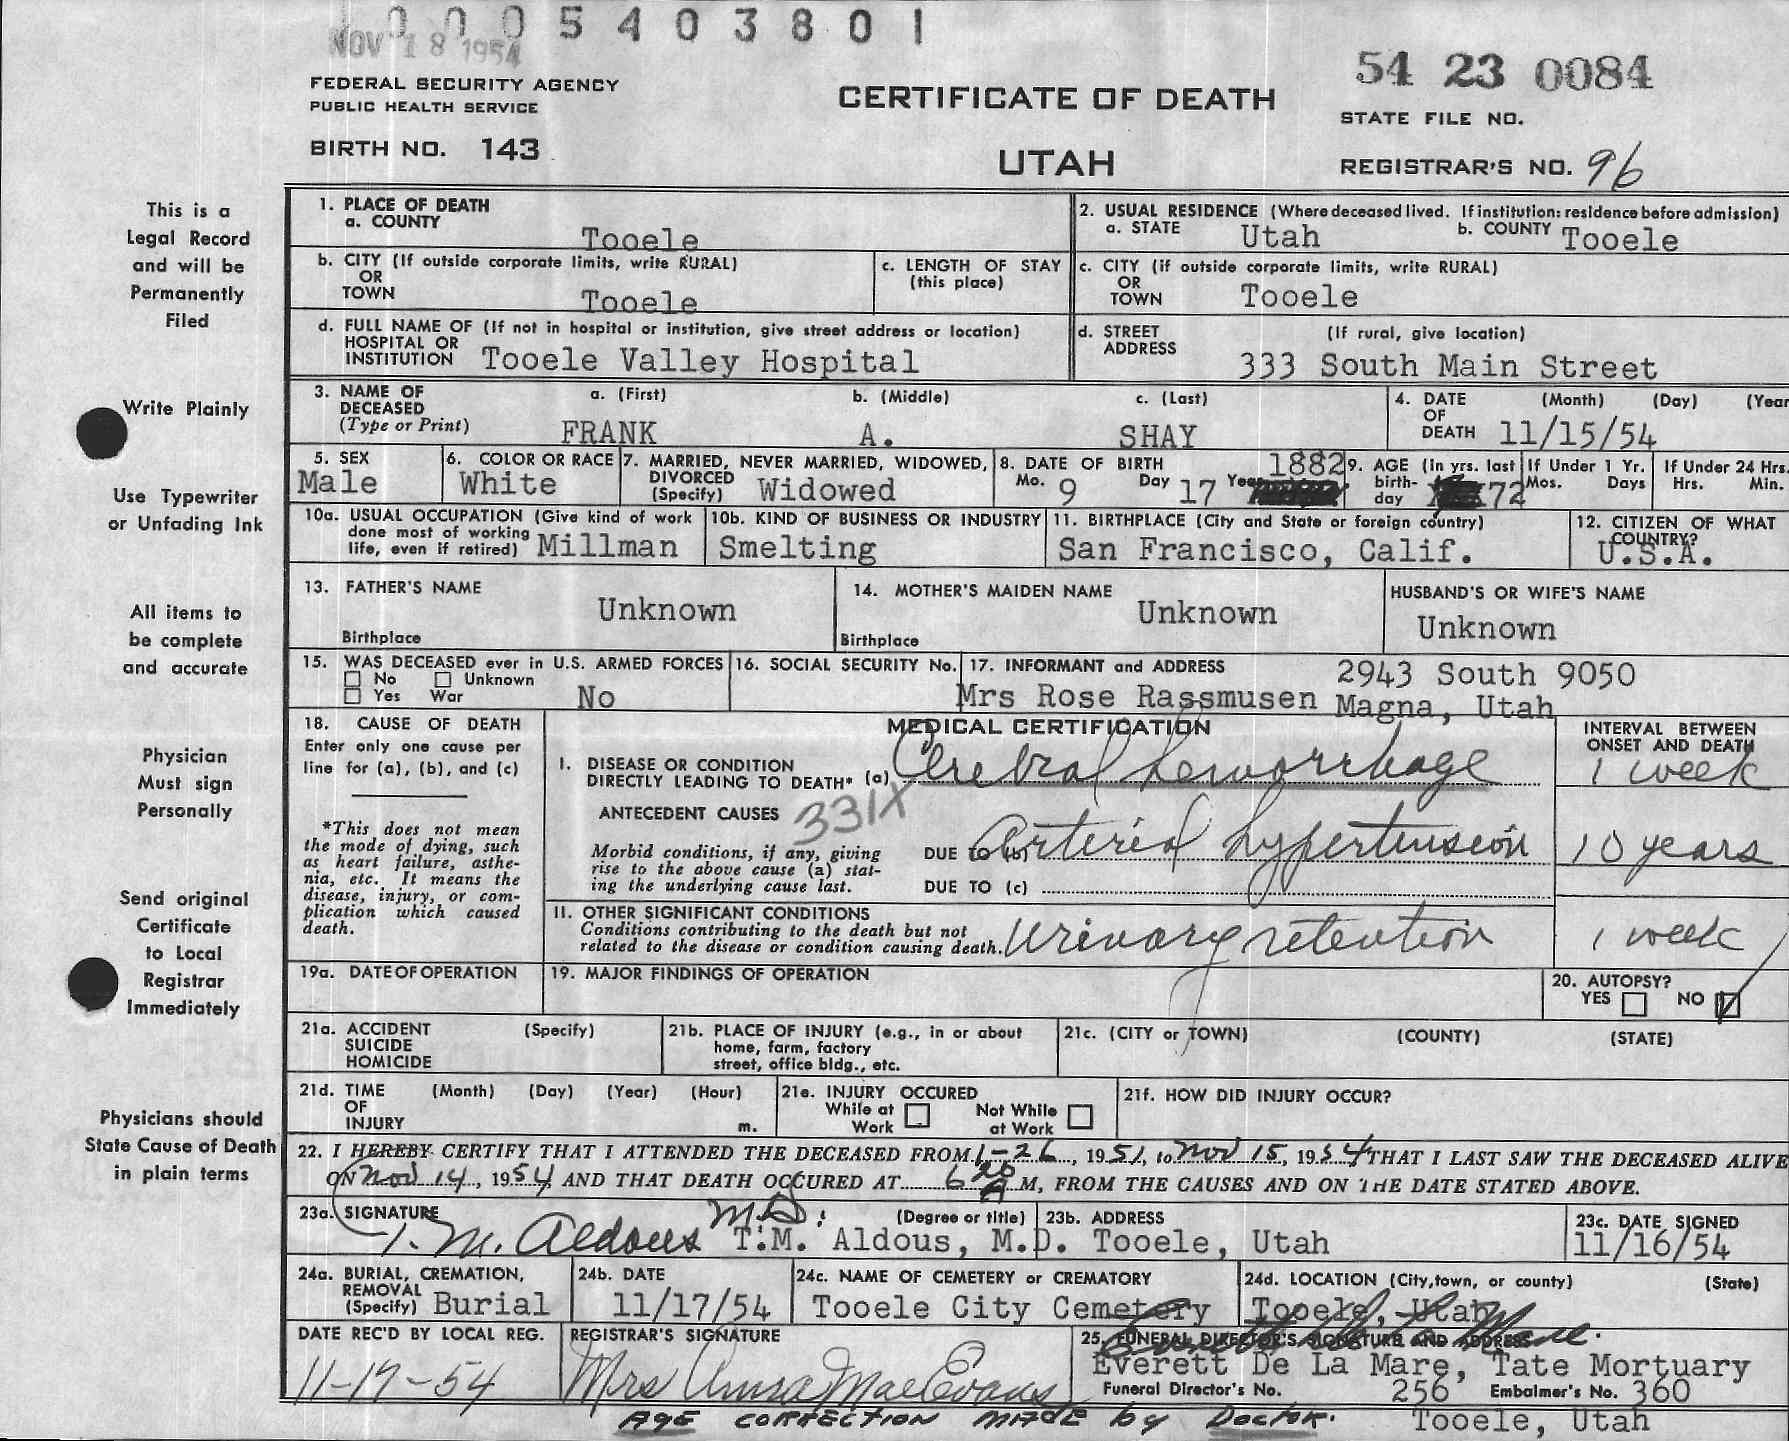 0005403801
NOV 18 1954
54 23 0084
FEDERAL SECURITY AGENCY
PUBLIC HEALTH SERVICE
CERTIFICATE OF DEATH
STATE FILE NO.
BIRTH NO. 143
UTAH
REGISTRAR'S NO. 96
This is a
Legal Record
and will be
Permanently
Filed
Write Plainly
Use Typewriter
or Unfading Ink
All items to
be complete
and accurate
Physician
Must sign
Personally
Send original
Certificate
to Local
Registrar
Immediately
Physicians should
State Cause of Death
in plain terms
1. PLACE OF DEATH
a. COUNTY
Tooele
2. USUAL RESIDENCE (Where deceased lived. If institution: residence before admission)
a. STATE Utah b. COUNTY Tooele
b. CITY (If outside corporate limits, write RURAL)
OR
TOWN Tooele
c. LENGTH OF STAY
(this place)
c. CITY (if outside corporate limits, write RURAL)
OR
TOWN Tooele
d. FULL NAME OF (If not in hospital or institution, give street address or location)
HOSPITAL OR
INSTITUTION Tooele Valley Hospital
d. STREET (If rural, give location)
ADDRESS
333 South Main Street
3. NAME OF
DECEASED
(Type or Print)
a. (First) b. (Middle) c. (Last)
FRANK A. SHAY
4. DATE (Month) (Day) (Year
OF
DEATH 11/15/54
5. SEX
Male
6. COLOR OR RACE
White
7. MARRIED, NEVER MARRIED, WIDOWED,
DIVORCED
(Specify) Widowed
8. DATE OF BIRTH 1882
Mo. 9 Day 17 Year
9. AGE (In yrs. last
birth-
day 72
If Under 1 Yr.
Mos. Days
If Under 24 Hrs.
Hrs. Min.
10a. USUAL OCCUPATION (Give kind of work
done most of working
life, even if retired) Millman
10b. KIND OF BUSINESS OR INDUSTRY
Smelting
11. BIRTHPLACE (City and State or foreign country)
San Francisco, Calif.
12. CITIZEN OF WHAT
COUNTRY?
U.S.A.
13. FATHER'S NAME
Unknown
Birthplace
14. MOTHER'S MAIDEN NAME
Unknown
Birthplace
HUSBAND'S OR WIFE'S NAME
Unknown
15. WAS DECEASED ever in U.S. ARMED FORCES
No Unknown
Yes War No
16. SOCIAL SECURITY No.
17. INFORMANT and ADDRESS 2943 South 9050
Mrs Rose Rassmusen Magna, Utah
18. CAUSE OF DEATH
Enter only one cause per
line for (a), (b), and (c)
*This does not mean
the mode of dying, such
as heart failure, asthe-
nia, etc. It means the
disease, injury, or com-
plication which caused
death.
MEDICAL CERTIFICATION
I. DISEASE OR CONDITION
DIRECTLY LEADING TO DEATH* (a) Cerebral hemorrhage
ANTECEDENT CAUSES 331X
Morbid conditions, if any, giving
rise to the above cause (a) stat-
ing the underlying cause last.
DUE to (b) Arterial hypertension
DUE TO (c)
II. OTHER SIGNIFICANT CONDITIONS
Conditions contributing to the death but not
related to the disease or condition causing death. Urinary retention
INTERVAL BETWEEN
ONSET AND DEATH
1 week
10 years
1 week
19a. DATE OF OPERATION
19. MAJOR FINDINGS OF OPERATION
20. AUTOPSY?
YES NO
21a. ACCIDENT (Specify)
SUICIDE
HOMICIDE
21b. PLACE OF INJURY (e.g., in or about
home, farm, factory
street, office bldg., etc.
21c. (CITY or TOWN) (COUNTY) (STATE)
21d. TIME (Month) (Day) (Year) (Hour)
OF
INJURY m.
21e. INJURY OCCURED
While at Work Not While at Work
21f. HOW DID INJURY OCCUR?
22. I HEREBY CERTIFY THAT I ATTENDED THE DECEASED FROM 1-26, 1951, to Nov 15, 1954 THAT I LAST SAW THE DECEASED ALIVE
ON Nov 14, 1954 AND THAT DEATH OCCURED AT 6 20 A M, FROM THE CAUSES AND ON THE DATE STATED ABOVE.
23a. SIGNATURE (Degree or title)
T. M. Aldous M.D. T.M. Aldous, M.D.
23b. ADDRESS
Tooele, Utah
23c. DATE SIGNED
11/16/54
24a. BURIAL, CREMATION,
REMOVAL
(Specify) Burial
24b. DATE
11/17/54
24c. NAME OF CEMETERY or CREMATORY
Tooele City Cemetery
24d. LOCATION (City, town, or county) (State)
Tooele, Utah
DATE REC'D BY LOCAL REG.
11-17-54
REGISTRAR'S SIGNATURE
Mrs Anna Mae Evans
25. FUNERAL DIRECTOR'S SIGNATURE AND ADDRESS
Everett De La Mare, Tate Mortuary
Funeral Director's No. 256 Embalmer's No. 360
AGE CORRECTION MADE by Doctor. Tooele, Utah